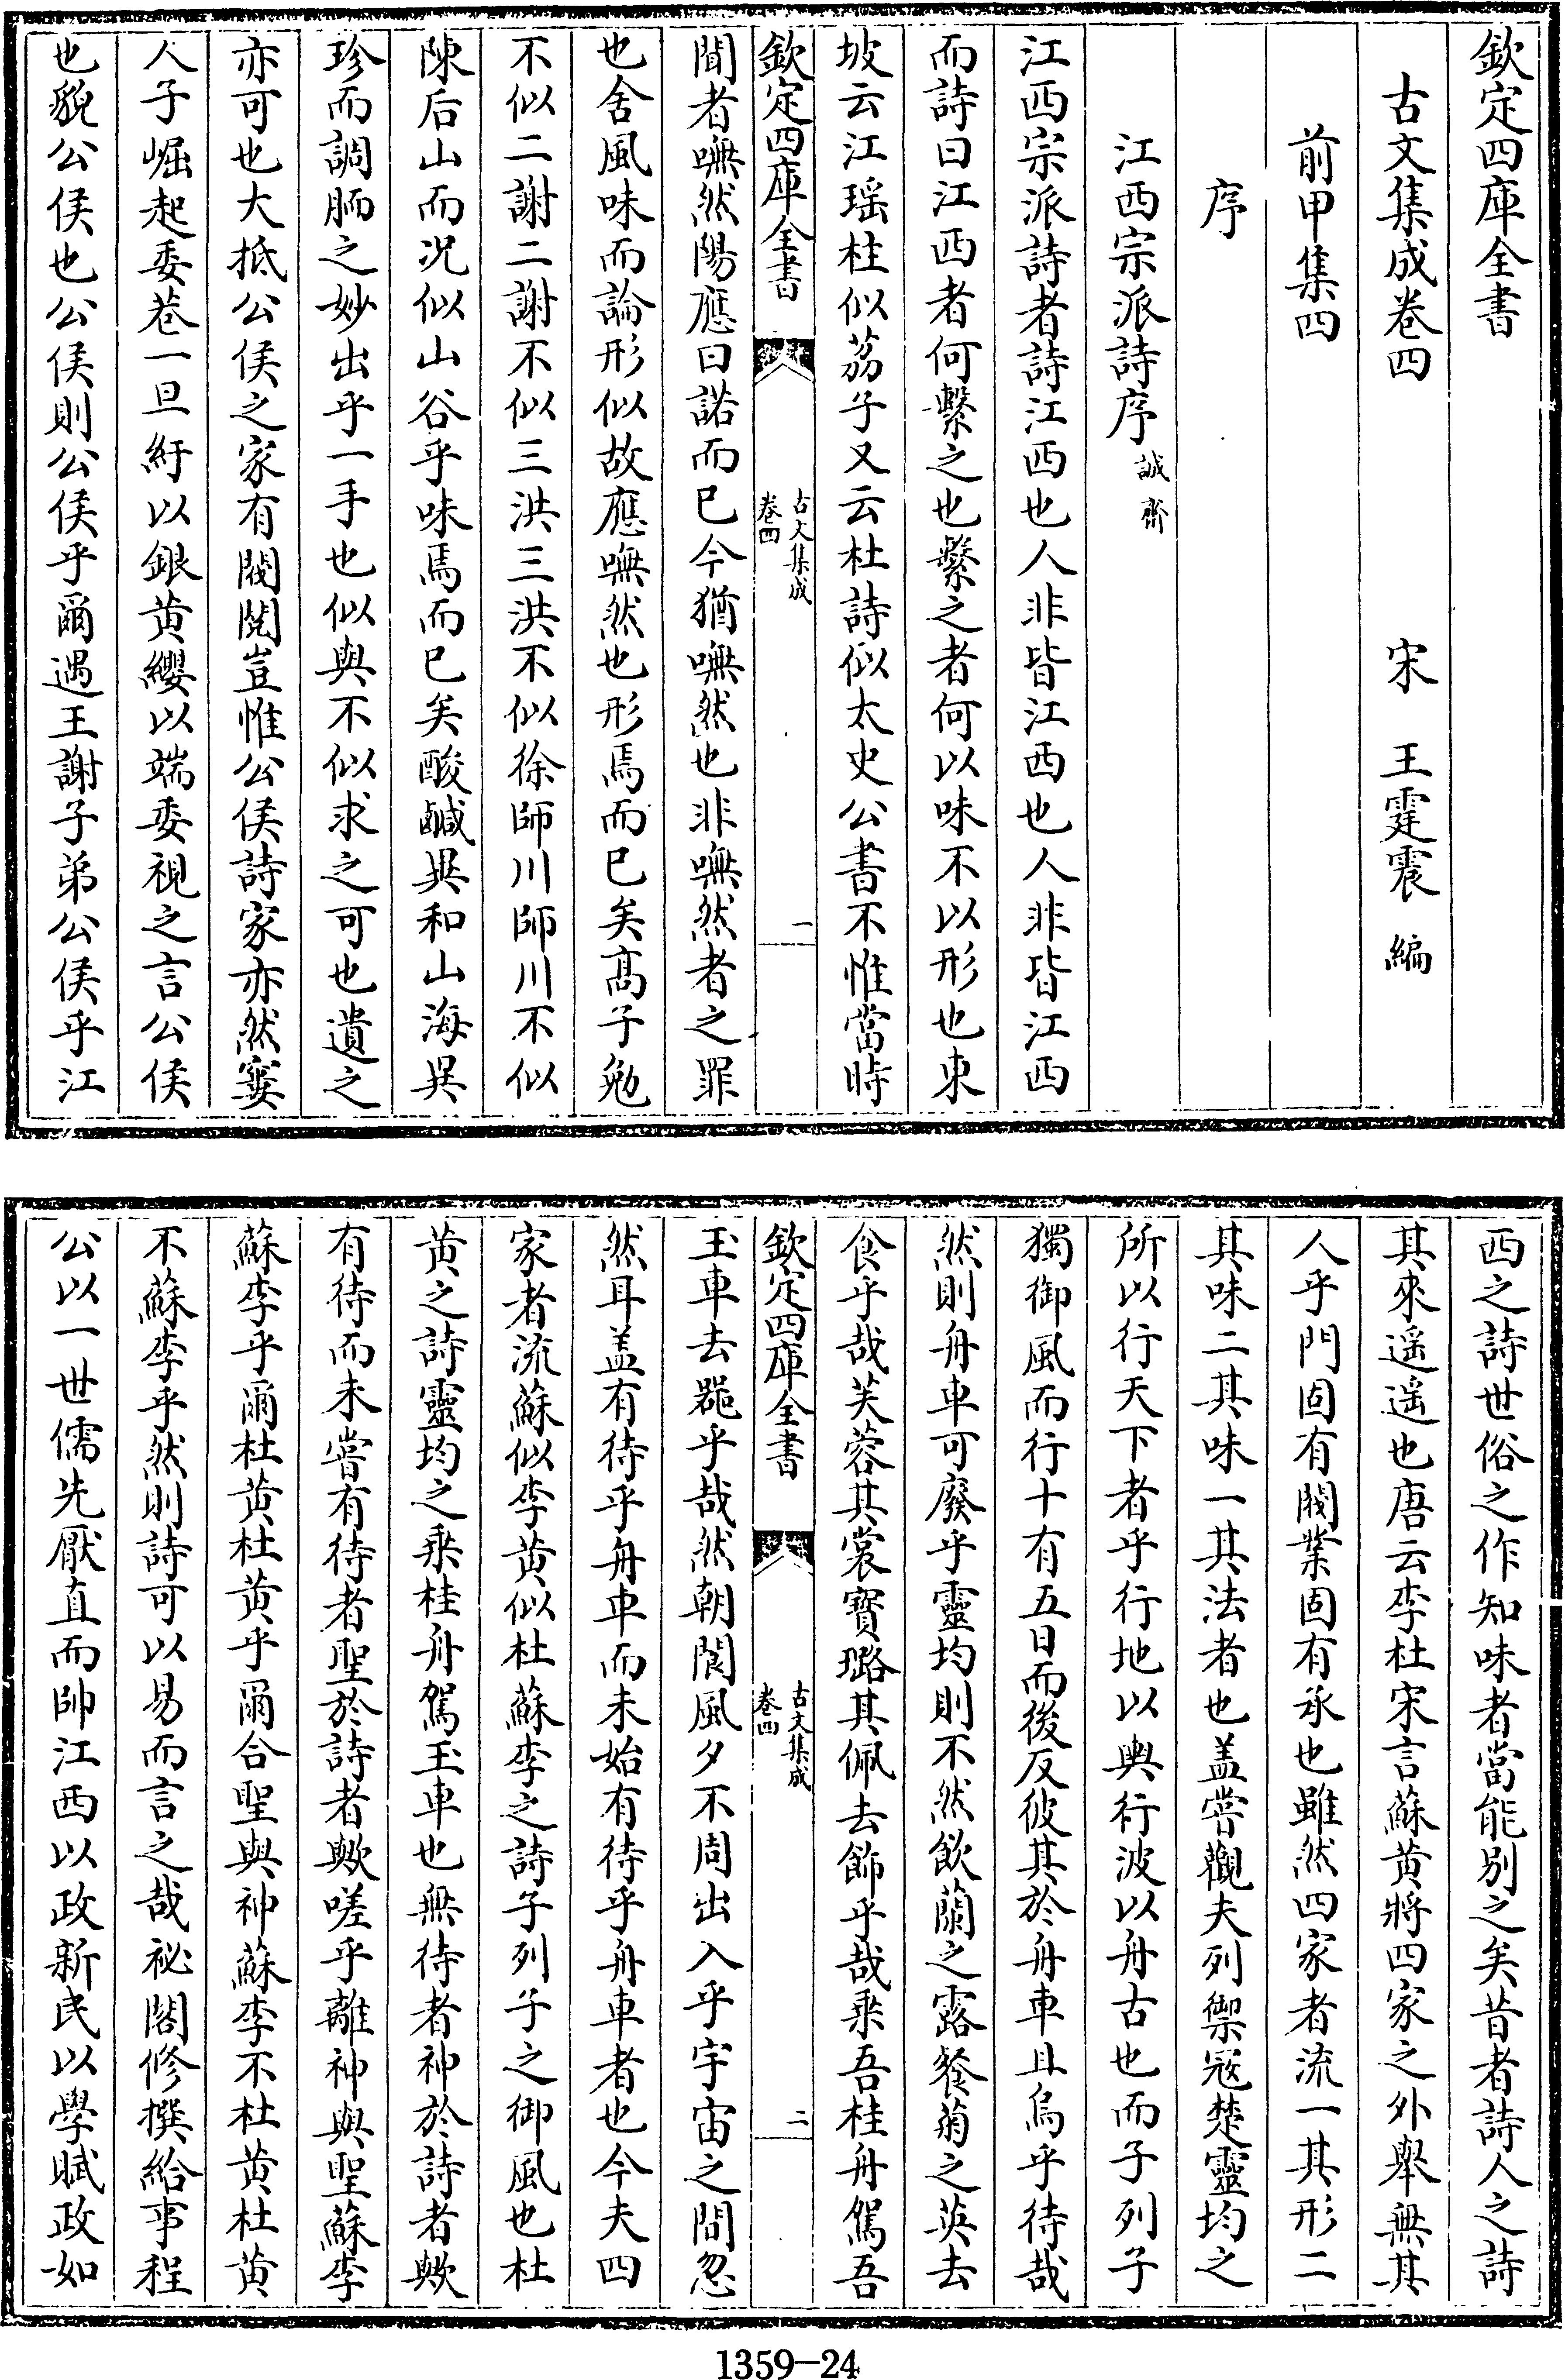 欽定四庫全書
古文集成卷四
宋 王霆震 編
前甲集四
序
江西宗派詩序 誠齋
江西宗派詩者詩江西也人非皆江西也人非皆江西
而詩曰江西者何繫之也繫之者何以味不以形也東
坡云江瑶柱似荔子又云杜詩似太史公書不惟當時
欽定四庫全書
古文集成
卷四
一
聞者嘸然陽應曰諾而已今猶嘸然也非嘸然者之罪
也舍風味而論形似故應嘸然也形焉而已矣髙子勉
不似二謝二謝不似三洪三洪不似徐師川師川不似
陳后山而况似山谷乎味焉而已矣酸鹹異和山海異
珍而調胹之妙出乎一手也似與不似求之可也遺之
亦可也大抵公侯之家有閥閲豈惟公侯詩家亦然窶
人子崛起委巷一旦紆以銀黄纓以端委視之言公侯
也貌公侯也公侯則公侯乎爾遇王謝子弟公侯乎江
西之詩世俗之作知味者當能别之矣昔者詩人之詩
其來遥遥也唐云李杜宋言蘇黄將四家之外舉無其
人乎門固有閥業固有承也雖然四家者流一其形二
其味二其味一其法者也盖嘗觀夫列禦冦楚靈均之
所以行天下者乎行地以輿行波以舟古也而子列子
獨御風而行十有五日而後反彼其於舟車且烏乎待哉
然則舟車可廢乎靈均則不然飲蘭之露餐菊之英去
食乎哉芙蓉其裳寳璐其佩去飾乎哉乘吾桂舟駕吾
欽定四庫全書
古文集成
卷四
二
玉車去器乎哉然朝閬風夕不周出入乎宇宙之間忽
然耳盖有待乎舟車而未始有待乎舟車者也今夫四
家者流蘇似李黄似杜蘇李之詩子列子之御風也杜
黄之詩靈均之乘桂舟駕玉車也無待者神於詩者歟
有待而未嘗有待者聖於詩者歟嗟乎離神與聖蘇李
蘇李乎爾杜黄杜黄乎爾合聖與神蘇李不杜黄杜黄
不蘇李乎然則詩可以易而言之哉祕閣修撰給事程
公以一世儒先厭直而帥江西以政新民以學賦政如
1359-24